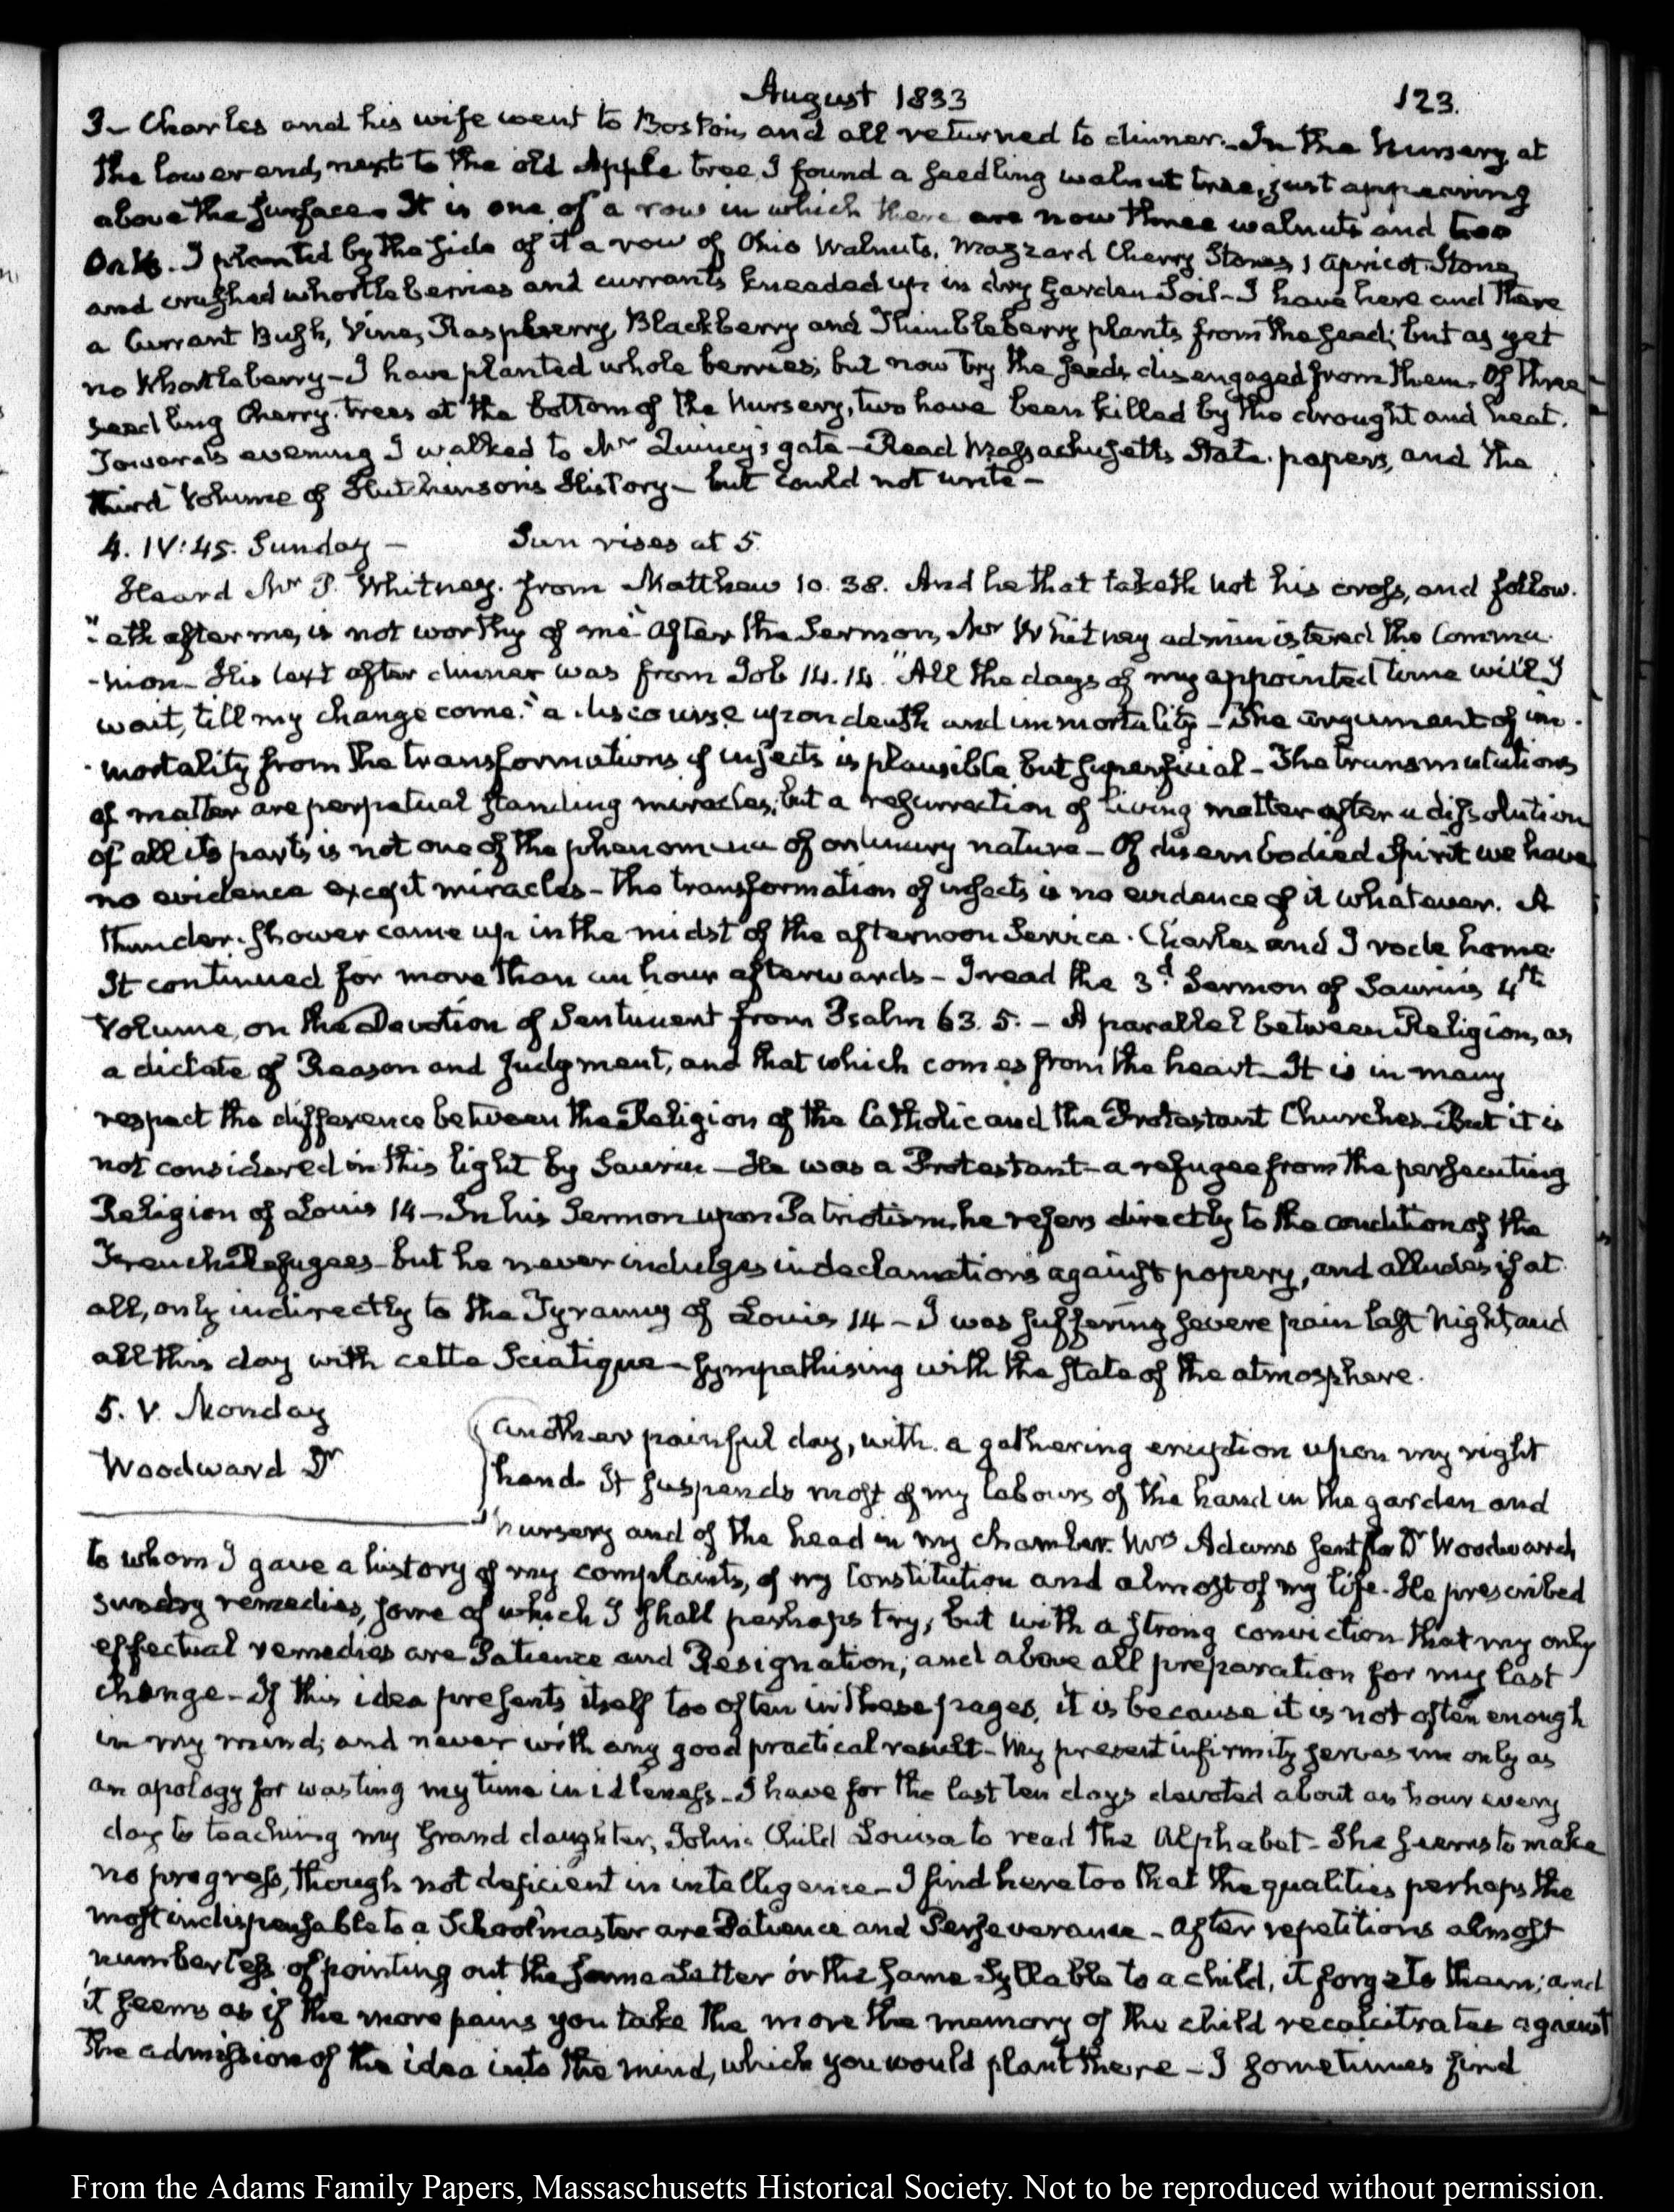 August 1833 123.
3– Charles and his wife went to Boston, and all returned to dinner.– In the Nursery, at
the lower end, next to the old Apple tree, I found a seedling walnut tree, just appearing
above the surface. It is one of a row in which there are now three walnuts and two
Oaks. I planted by the side of it a row of Ohio Walnuts, Mazzard Cherry Stones, 1 Apricot Stone,
and crushed whortleberries and currants kneaded up in dry Garden Soil– I have here and there
a Currant Bush, Vine, Raspberry, Blackberry and Thimbleberry plants from the seed; but as yet
no Whortleberry– I have planted whole berries; but now try the seeds disengaged from them. Of three
seedling Cherry-trees at the bottom of the Nursery, two have been killed by the drought and heat.
Towards evening I walked to Mr Quincy's gate– Read Massachusetts State-papers, and the
third Volume of Hutchinson's History– but could not write–
4. IV:45. Sunday – Sun rises at 5.
Heard Mr P. Whitney. from Matthew 10. 38. And he that taketh not his cross, and follow-
"eth after me, is not worthy of me" After the Sermon, Mr Whitney administered the Commu-
-nion– His text after dinner was from Job 14.14. "All the days of my appointed time will I
wait, till my change come." a discourse upon death and immortality– The argument of im-
-mortality from the transformations of insects is plausible but superficial– The transmutations
of matter are perpetual standing miracles; but a resurrection of living matter after a dissolution
of all its parts is not one of the phenomena of ordinary nature– Of disembodied spirit we have
no evidence except miracles– The transformation of insects is no evidence of it whatever. A
thunder-shower came up in the midst of the afternoon Service. Charles and I rode home.
It continued for more than an hour afterwards– I read the 3d Sermon of Saurin's 4th
Volume, on the Devotion of Sentiment from Psalm 63. 5.– A parallel between Religion, as
a dictate of Reason and Judgment, and that which comes from the heart– It is in many
respect the difference between the Religion of the Catholic and the Protestant Churches– But it is
not considered in this light by Saurin– He was a Protestant– a refugee from the persecuting
Religion of Louis 14– In his Sermon upon Patriotism, he refers directly to the condition of the
French Refugees– but he never indulges in declamations against popery, and alludes if at
all, only indirectly to the Tyranny of Louis 14– I was suffering severe pain last Night, and
all this day with cette Sciatique– sympathising with the state of the atmosphere.
5. V. Monday
Woodward Dr
Another painful day, with a gathering eruption upon my right
hand. It suspends most of my labours of the hand in the garden and
nursery and of the head in my chamber. Mrs Adams sent for Dr Woodward,
to whom I gave a history of my complaints, of my Constitution and almost of my life. He prescribed
sundry remedies, some of which I shall perhaps try; but with a strong conviction that my only
effectual remedies are Patience and Resignation; and above all preparation for my last
change– If this idea presents itself too often in these pages, it is because it is not often enough
in my mind; and never with any good practical result– My present infirmity serves me only as
an apology for wasting my time in idleness– I have for the last ten days devoted about an hour every
day to teaching my Grand daughter, John's Child Louisa to read the Alphabet– She seems to make
no progress, though not deficient in intelligence– I find here too that the qualities perhaps the
most indispensable to a Schoolmaster are Patience and Perseverance– After repetitions almost
numberless of pointing out the same Letter or the same Syllable to a child, it forgets them; and
it seems as if the more pains you take the more the memory of the child recalcitrates against
the admission of the idea into the mind, which you would plant there– I sometimes find
From the Adams Family Papers, Massachusetts Historical Society. Not to be reproduced without permission.